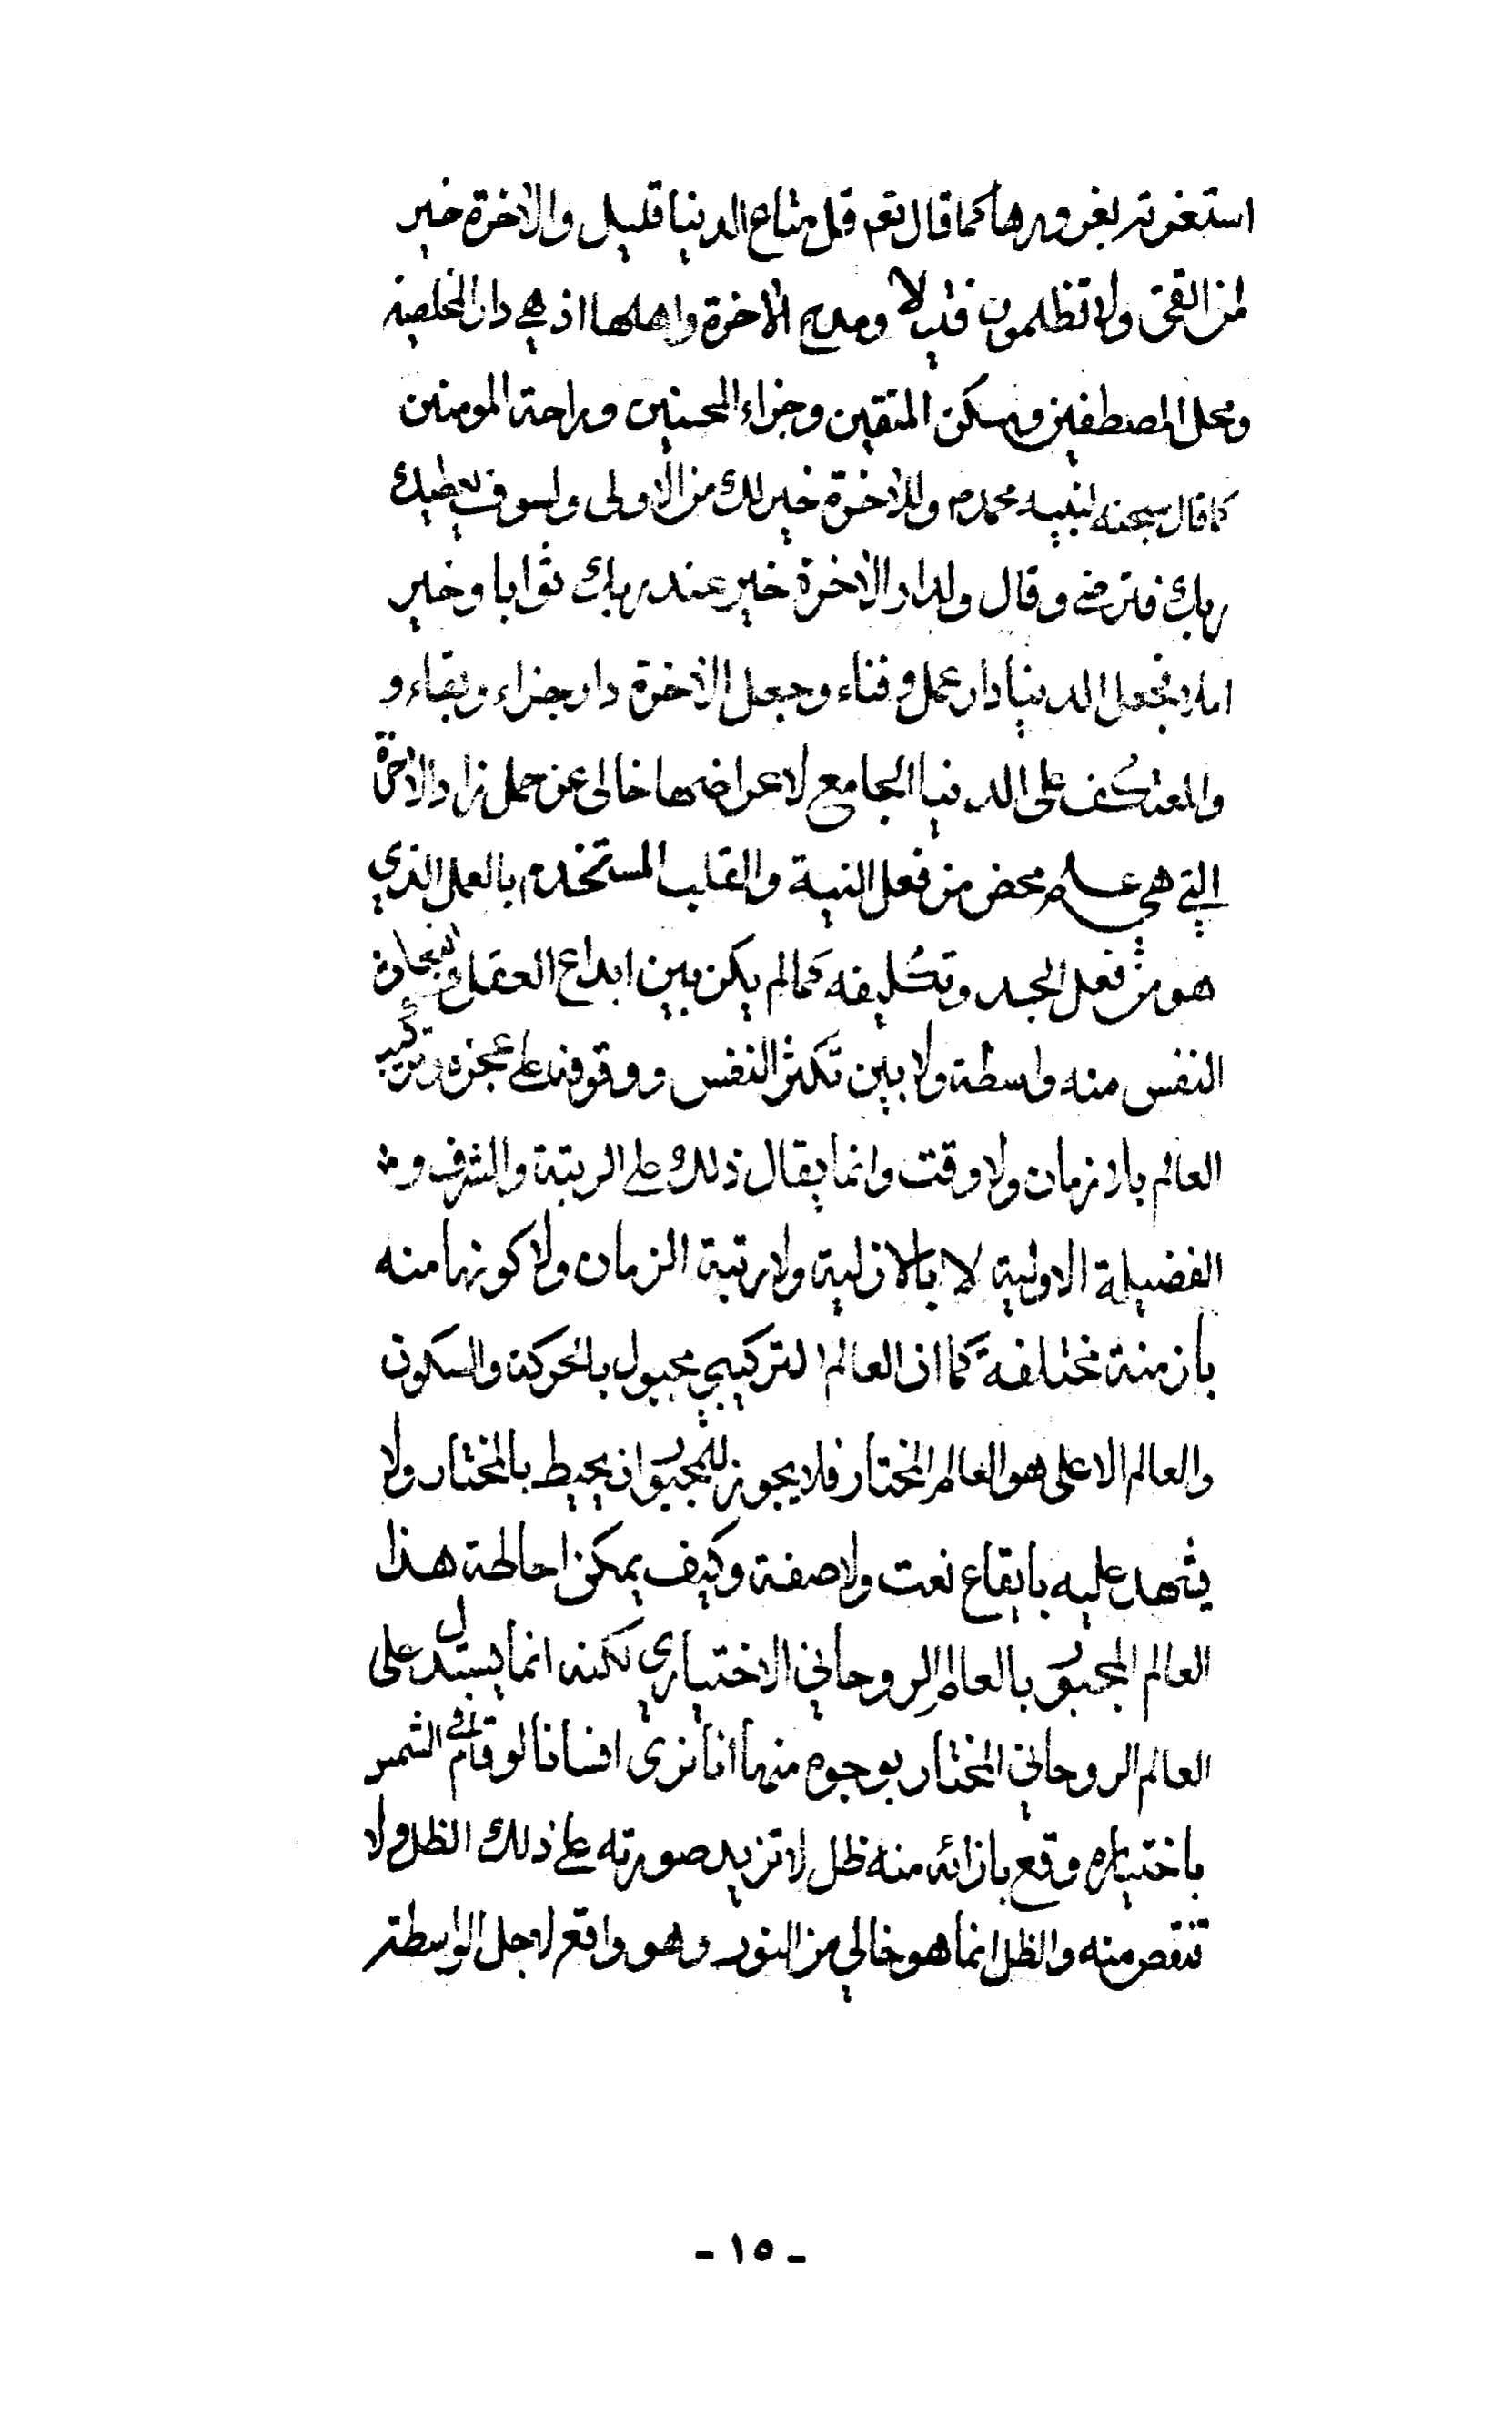 استغرته بغرورها كما قال تعم قل متاع الدنيا قليل والاخرة خير
لمن اتقى ولا تظلمون فتيلا ومدح الاخرة واهلها اذ هي دار المخلصين
ومحل المصطفين ومسكن المتقين وجزاء المحسنين وراحة المومنين
كما قال سبحنه لنبيه محمدم وللاخرة خير لك من الاولى ولسوف يعطيك
ربك فترضى وقال ولدار الاخرة خير عند ربك ثوابا وخير
املا فجعل الدنيا دار عمل وفناء وجعل الاخرة دار جزاء وبقاء و
والمعتكف على الدنيا الجامع لاعراضها خالى عن حمل زاد الاخرة
التي هي علم محض من فعل النية والقلب المستخدم بالعمل الذي
هو من فعل الجسد وتكليفه كما لم يكن بين ابداع العقل وانبجاث
النفس منه واسطة ولا بين تكثر النفس ووقوفه على عجزه وتركيب
العالم بلا زمان ولا وقت وانما يقال ذلك على الرتبة والشرف و
الفضيلة الاولية لا بالازلية ولا رتبة الزمان ولا كونها منه
بازمنة مختلفة كما ان العالم التركيبي مجبول بالحركة والسكون
والعالم الاعلى هو العالم المختار فلا يجوز للمجبور ان يحيط بالمختار ولا
يشهد عليه بايقاع نعت ولا صفة وكيف يمكن احاطة هذا
العالم المجبور بالعالم الروحاني الاختياري لكنه انما يستدل على
العالم الروحاني المختار بوجوه منها انا نرى انسانا لو قام في الشمس
باختياره وقع بازائه منه ظل لا تزيد صورته على ذلك الظل ولا
تنقص منه والظل انما هو خالي من النور وهو واقع لاجل الواسطة
- ١٥ -